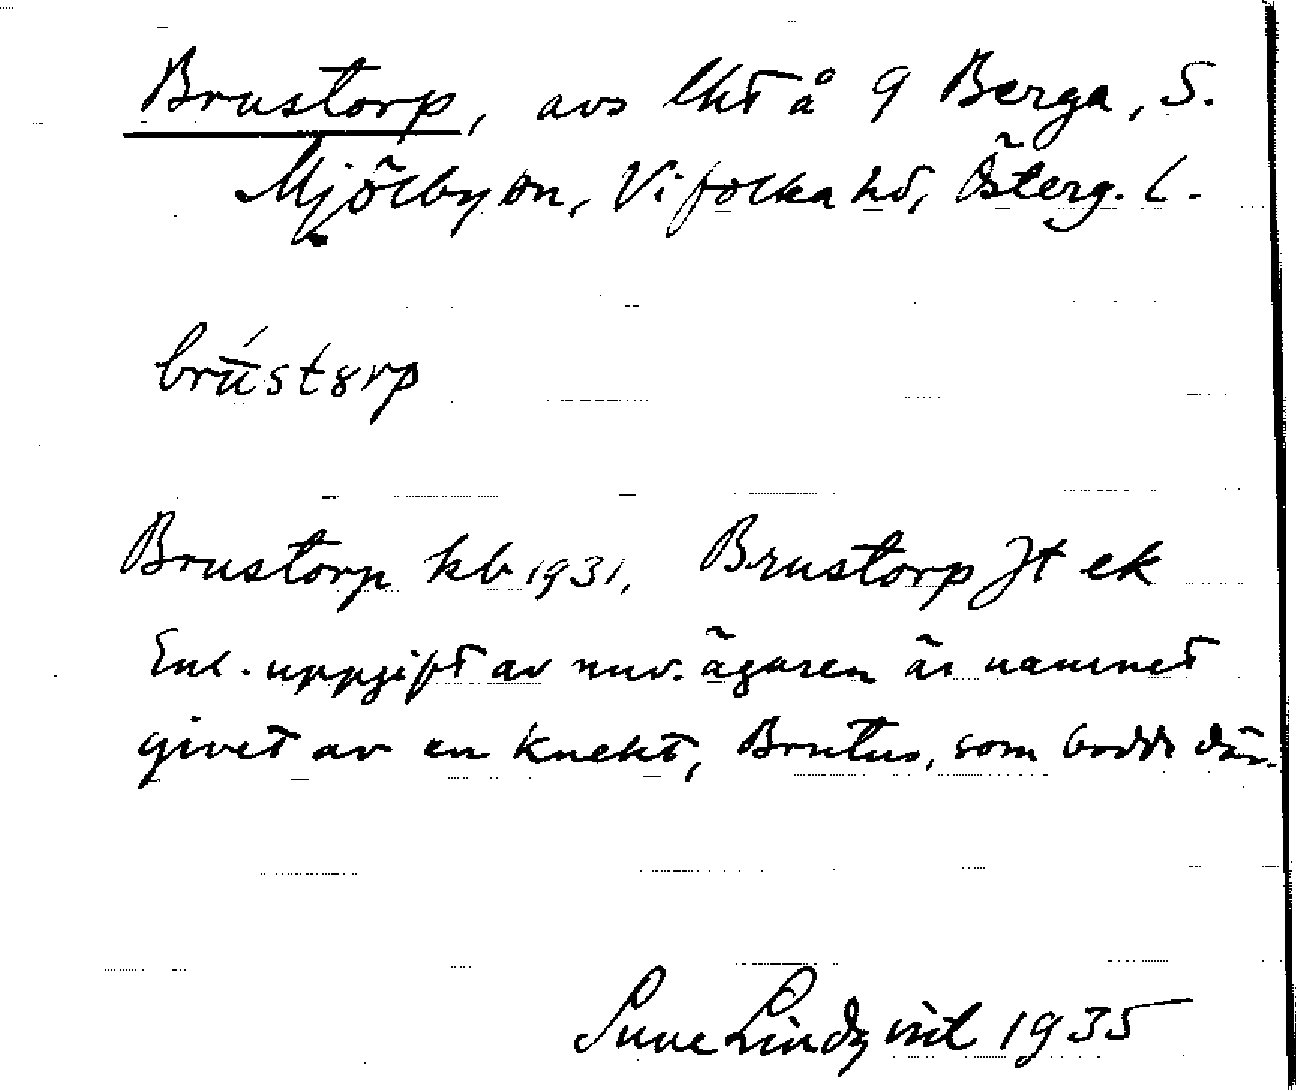 Brustorp, avs lht å 9 Berga, S.
Mjölby sn, Vifolka hd, Österg. l.
brū́stȣrp
Brustorp kb 1931, Brustorp Jt ek
Enl. uppgift av nuv. ägaren är namnet
givet av en knekt, Brutus, som bodde där.
Sune Lindqvist 1935